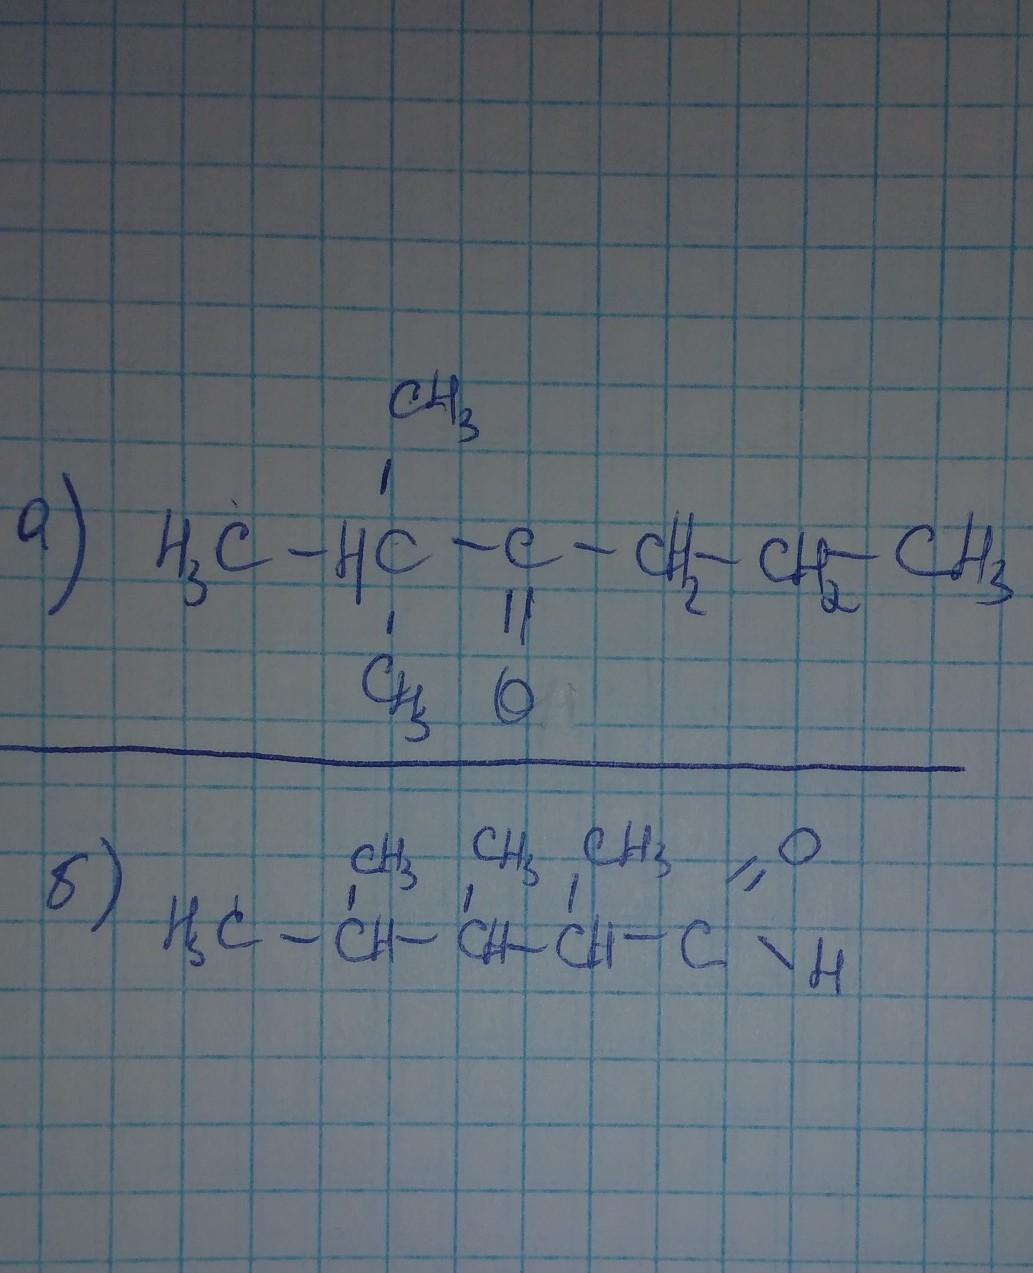 CH₃
а) H₃C – HC – C – CH₂ – CH₂ – CH₃
CH₃ O
б) CH₃ CH₃ CH₃ O
H₃C – CH – CH – CH – C
H